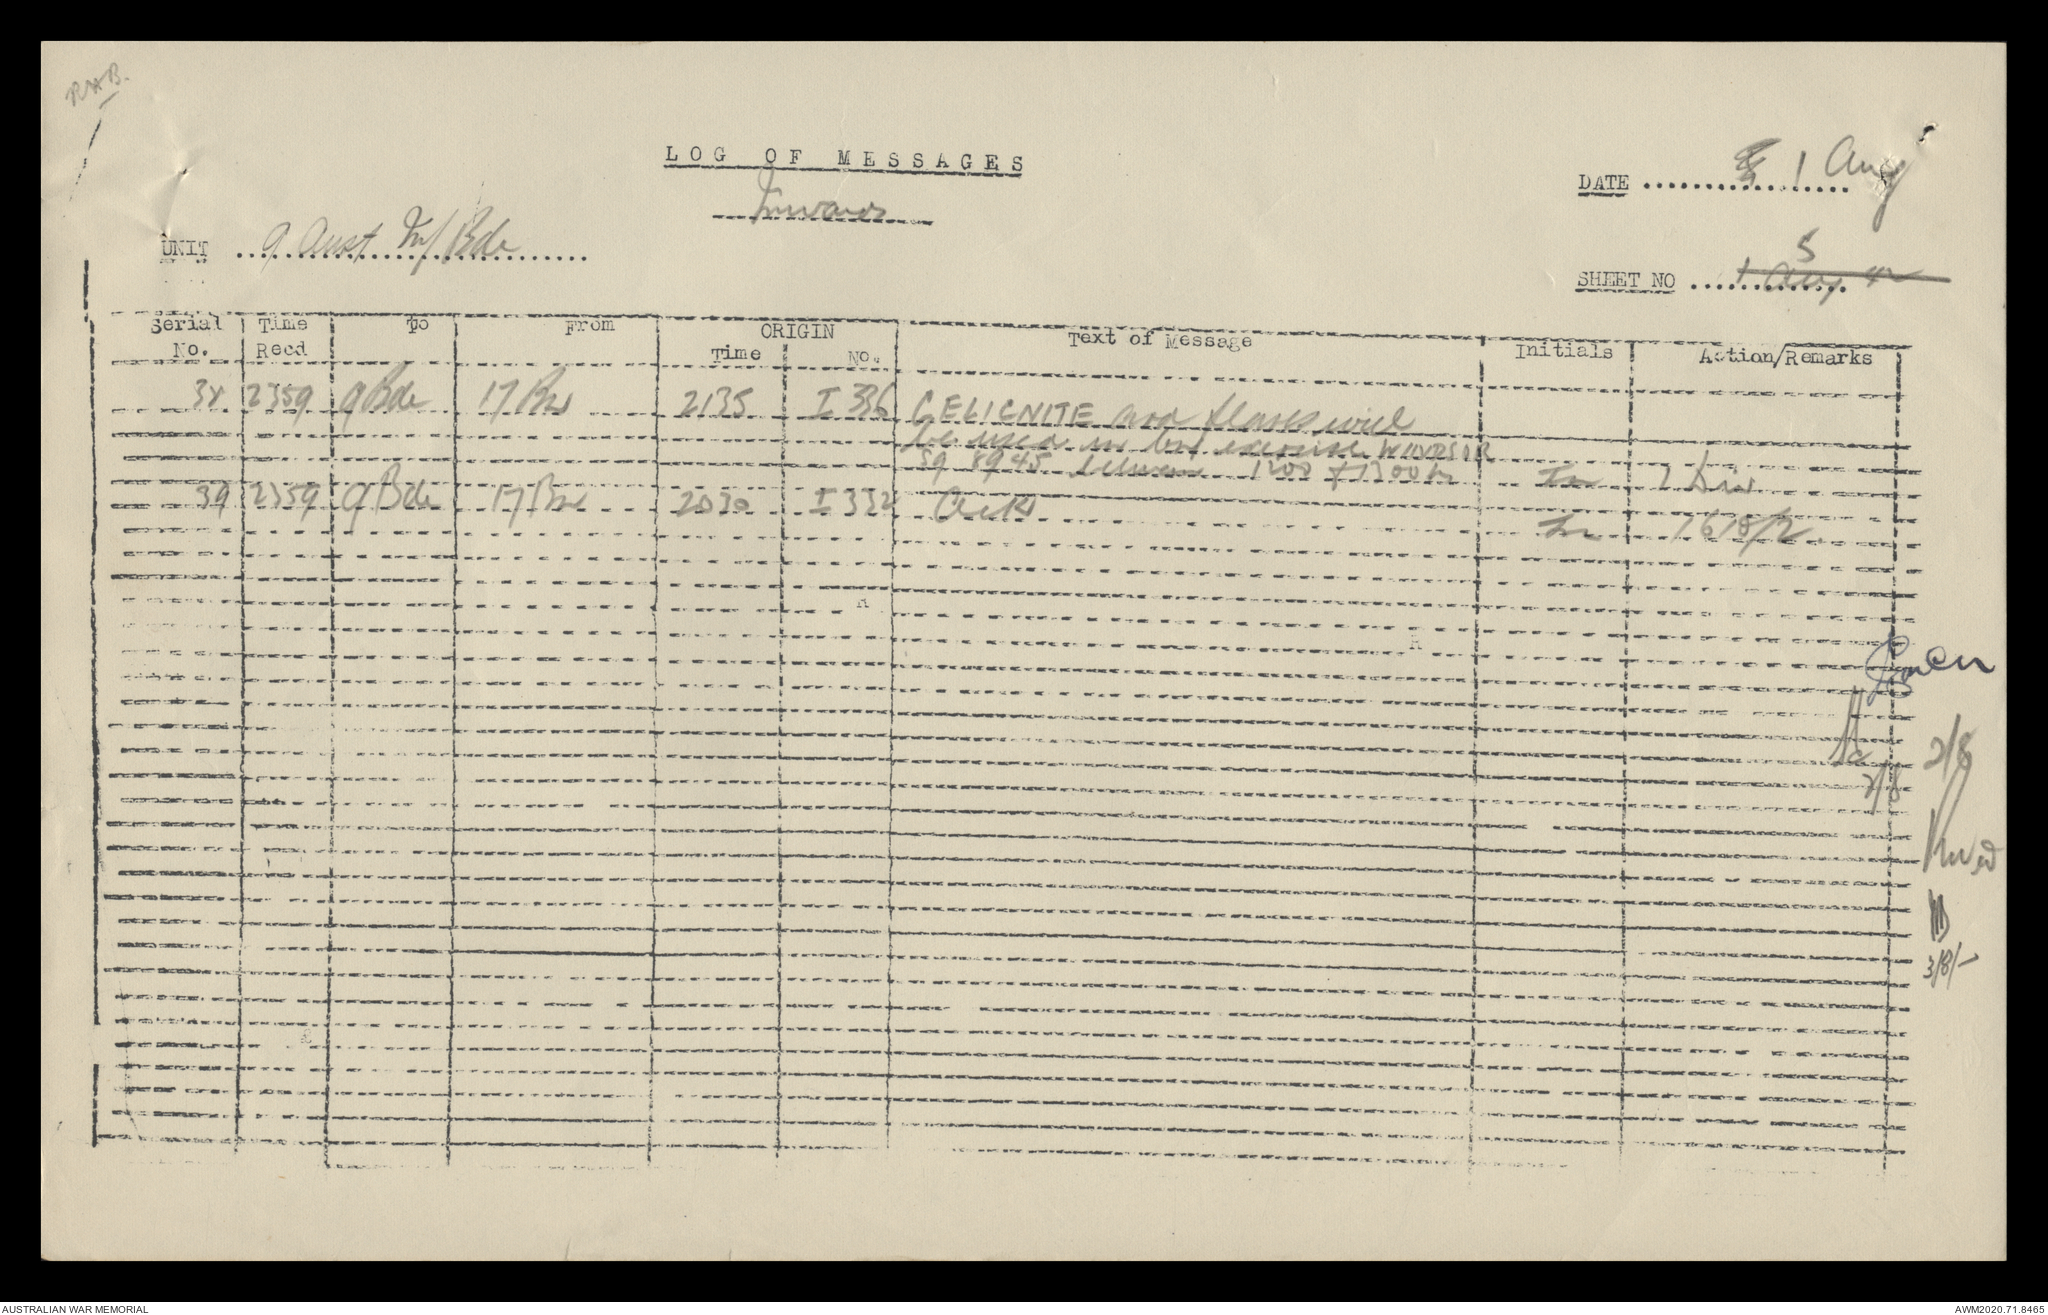 RAB.
LOG OF MESSAGES
Inwards
DATE 1 Aug
UNIT 9 Aust Inf Bde
SHEET NO 5
1 Aug 42
Serial No. Time Recd To From ORIGIN Time No. Text of Message Initials Action/Remarks
38 2359 9 Bde 17 Bn 2135 I 336 GELIGNITE and flares will
be used in bn exercise WINDSOR
59 8945 between 1200 & 1300 h 1 Div
39 2359 9 Bde 17 Bn 2030 I 332 Ack
R
R
2/8
2/8
3/8/-
AUSTRALIAN WAR MEMORIAL
AWM2020.71.8465